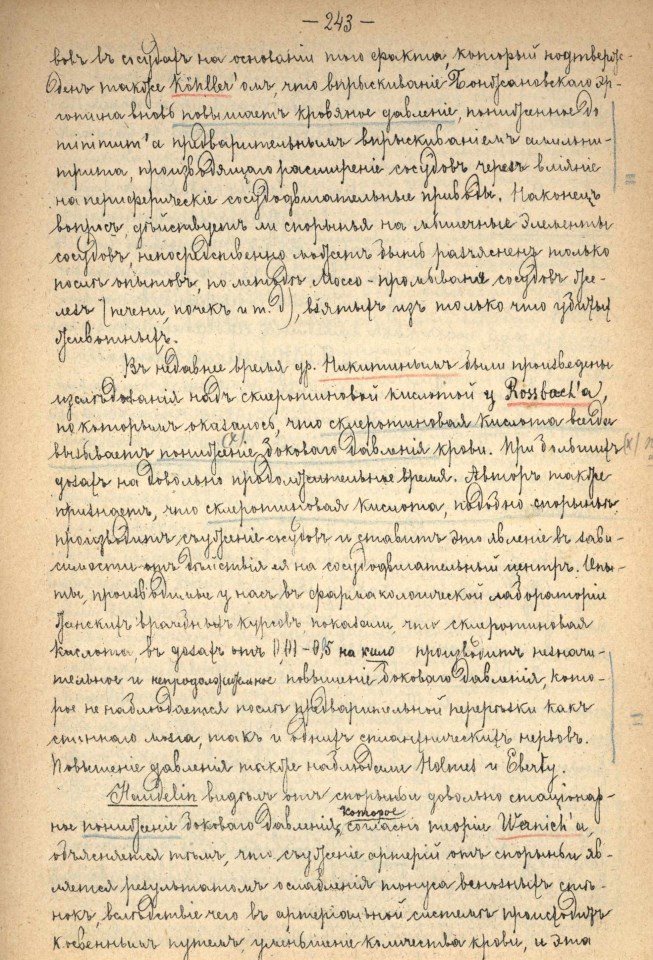 — 243 —
вовъ въ сосудахъ на основаніи того факта, который подтверж-
денъ также Köhller'омъ, что впрыскиваніе Бонжановскаго эр-
готина вновь повышаетъ кровяное давленіе, пониженное до
minimum'а предварительнымъ впрыскиваніемъ амильни-
трита, производящаго расширеніе сосудовъ черезъ вліяніе
на периферическіе сосудодвигательные приводы. Наконецъ
вопросъ, дѣйствуетъ ли спорынья на мышечные элементы
сосудовъ, непосредственно можетъ быть разъясненъ только
послѣ опытовъ, по методѣ Моссо - промыванія сосудовъ же-
лезъ (печени, почекъ и т. д), взятыхъ изъ только что убитыхъ
животныхъ.
Въ недавнее время др. Никитинымъ были произведены
изслѣдованія надъ склеротиновой кислотой у Rossbach'а,
по которымъ оказалось, что склеротиновая кислота всегда
вызываетъ пониженіе (x) боковаго давленія крови. При большихъ (x)
дозахъ на довольно продолжительное время. Авторъ также
признаетъ, что склеротиновая кислота, подобно спорыньѣ
производитъ съуженіе сосудовъ и ставитъ это явленіе въ зави-
симости отъ дѣйствія ея на сосудодвигательный центръ. Опы-
ты, производимые у насъ въ фармакологической лабораторіи
женскихъ врачебныхъ курсовъ показали, что склеротиновая
кислота, въ дозахъ отъ 0,01 - 0,5 на кило производитъ незначи-
тельное и непродолжительное повышеніе боковаго давленія, кото-
рое не наблюдается послѣ предварительной перерѣзки какъ
спиннаго мозга, такъ и однихъ спланхническихъ нервовъ.
Повышеніе давленія также наблюдали Holmes и Eberty.
Haudelin видѣлъ отъ спорыньи довольно стаціонар-
ное пониженіе боковаго давленія, которое согласно теоріи Wernich'а,
объясняется тѣмъ, что съуженіе артерій отъ спорыньи яв-
ляется результатомъ ослабленія тонуса венозныхъ стѣ-
нокъ, вслѣдствіе чего въ артеріальной системѣ происходитъ
косвеннымъ путемъ уменьшеніе количества крови, и эта